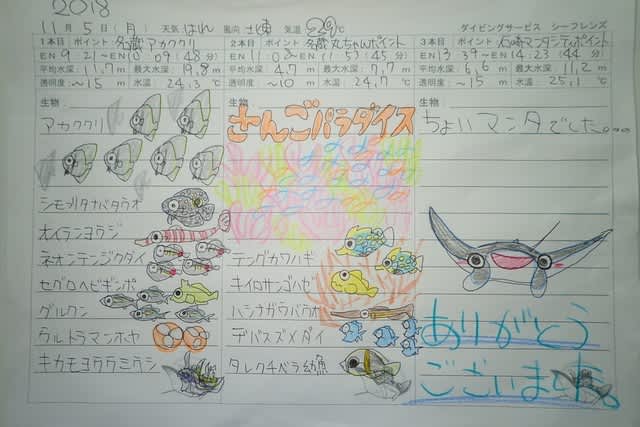 2018
11月5日(月) 天気 はれ 風向 北東 気温 29℃ ダイビングサービス シーフレンズ
1本目 ポイント 名蔵 アカククリ
EN 9:21～EX 10:09(48分)
平均水深:11.7m 最大水深 19.8m
透明度:～15m 水温 24.3℃
生物
アカククリ
シモフリタナバタウオ
オイランヨウジ
ネオンテンジクダイ
セグロヘビギンポ
ダルマハゼ
ウルトラマンホヤ
キカモヨウウミウシ
2本目 ポイント 名蔵 丸ちゃんポイント
EN 11:02～EX 11:53(45分)
平均水深:4.7m 最大水深 7.7m
透明度:～10m 水温 24.7℃
生物
さんごパラダイス
テングカワハギ
キイロサンゴハゼ
ハシナガウバウオ
デバスズメダイ
タレクチベラ幼魚
3本目 ポイント 石崎マンタシティポイント
EN 13:39～EX 14:23(44分)
平均水深:6.6m 最大水深 11.2m
透明度:～15m 水温 25.1℃
生物
ちょいマンタでした。。。
ありがとう
ございました。